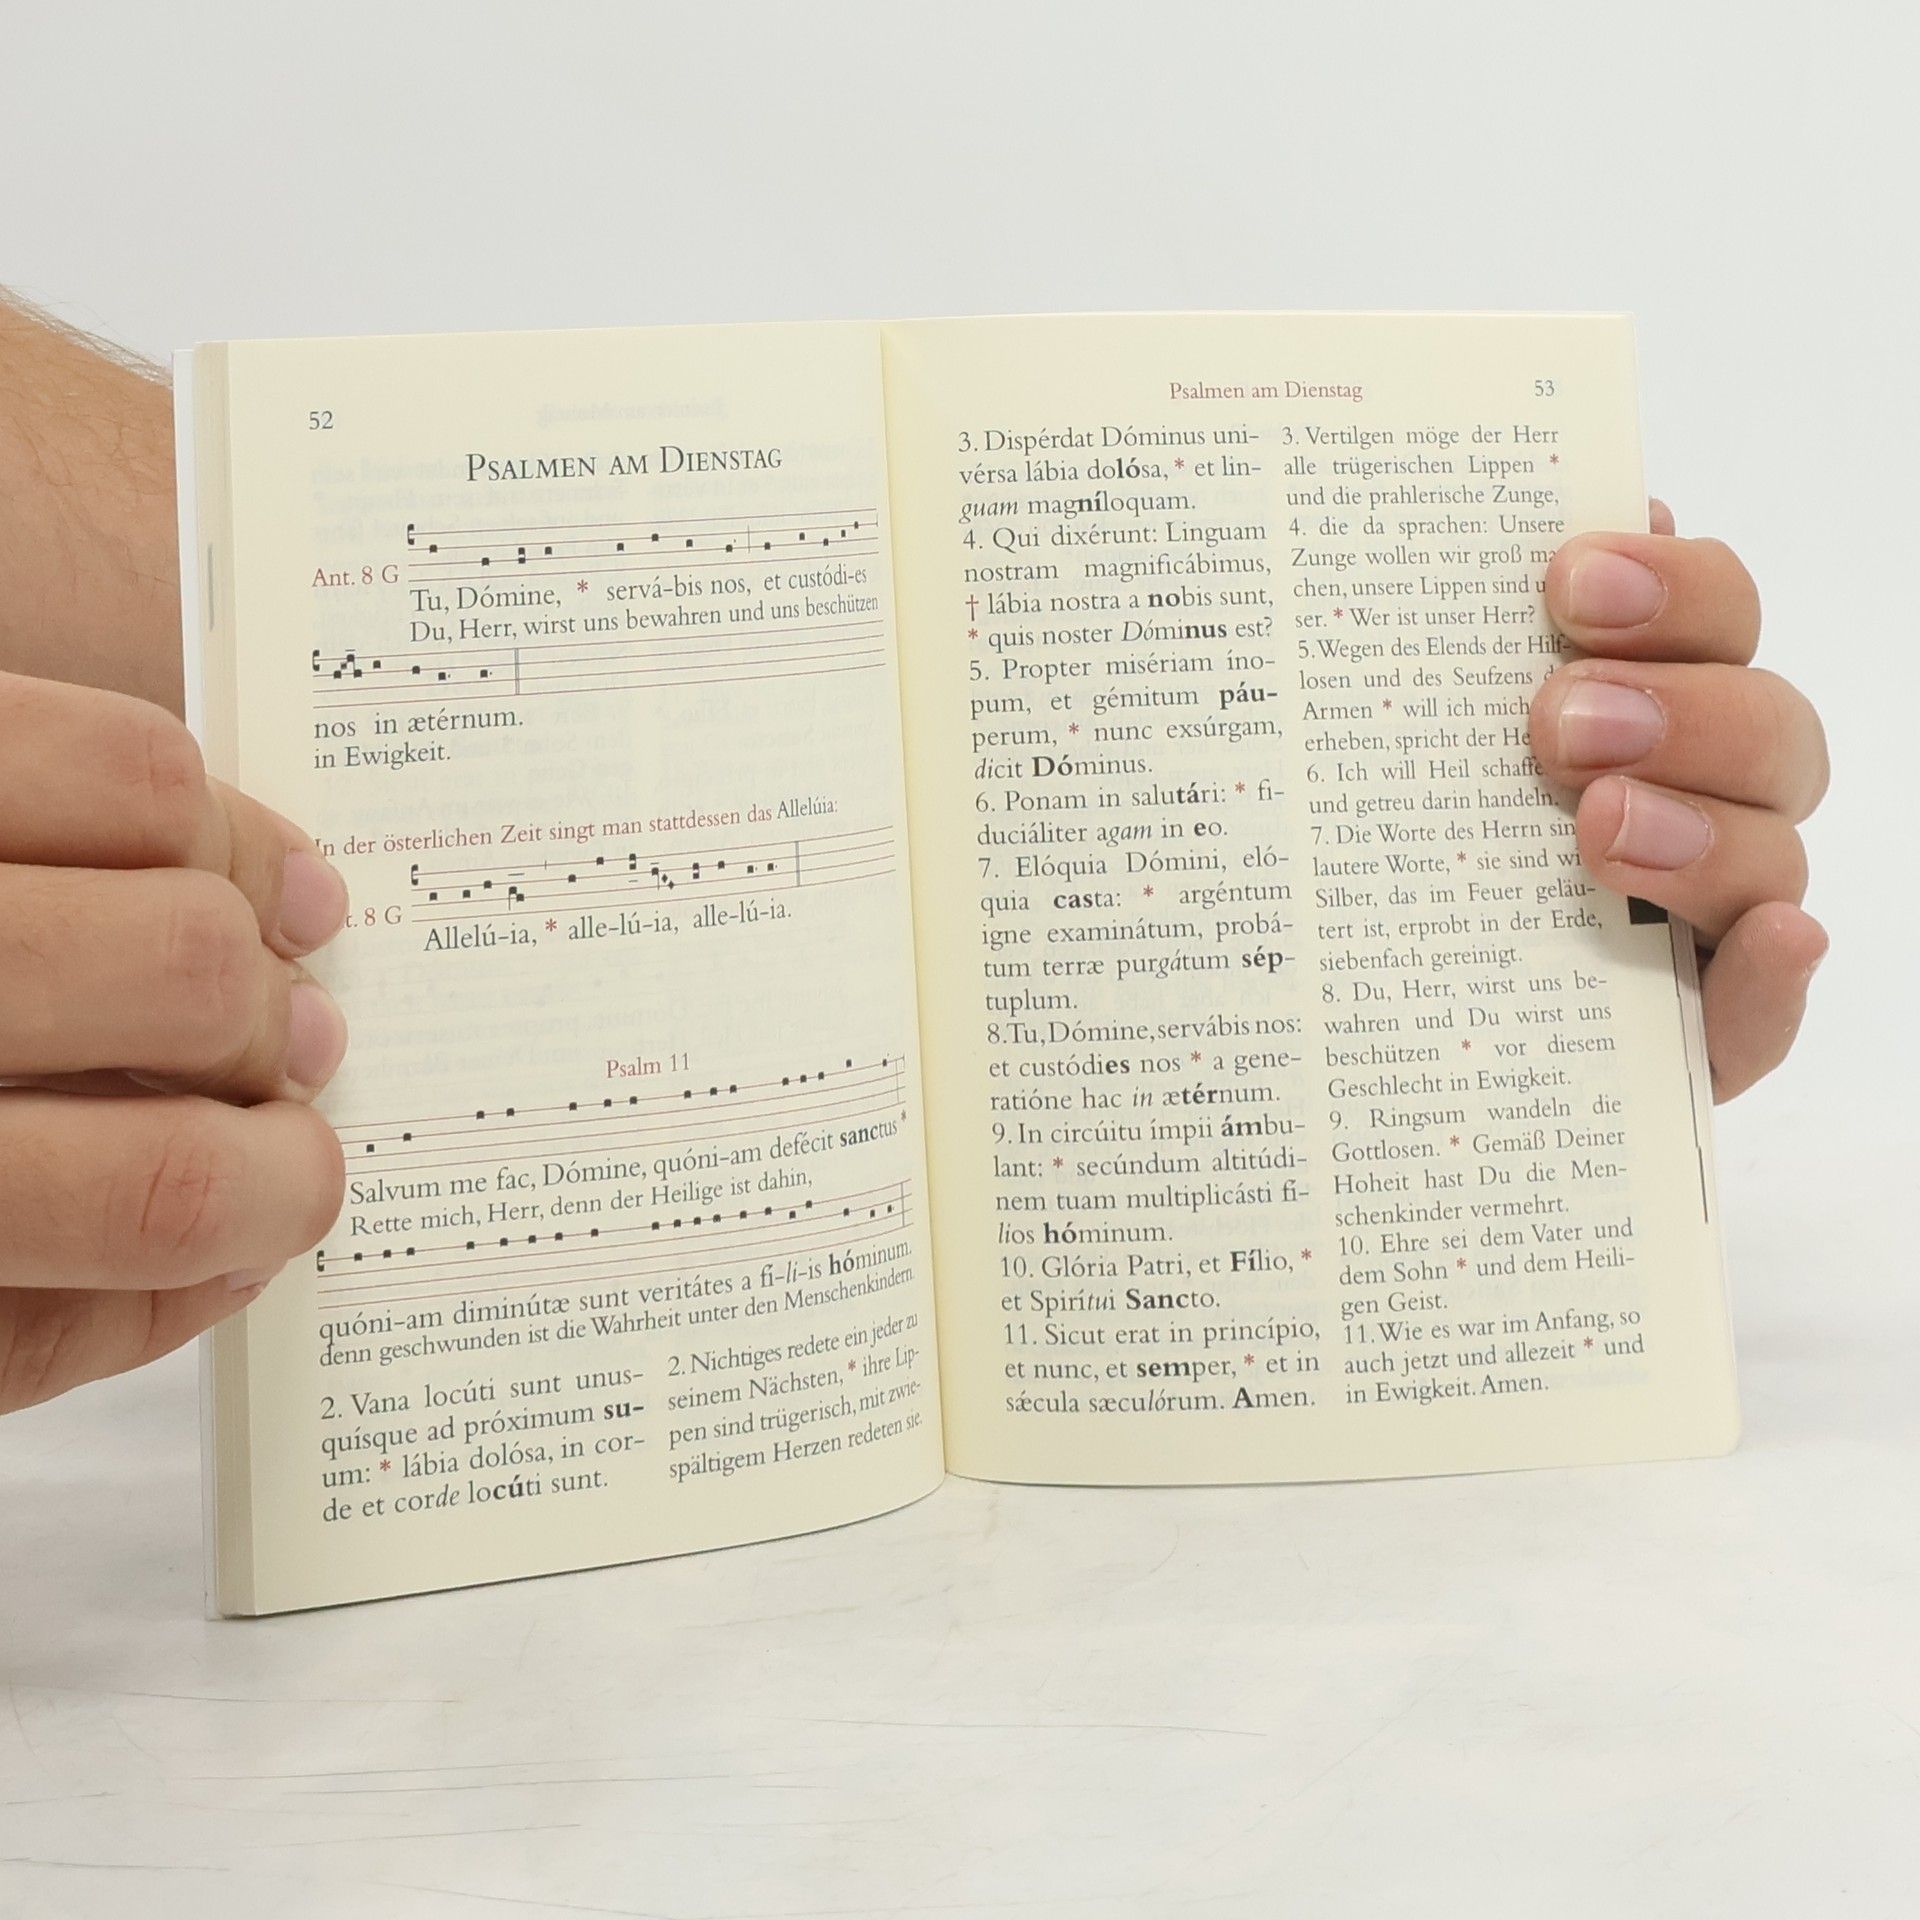 52
PSALMEN AM DIENSTAG
Ant. 8 G
Tu, Dómine, * servá-bis nos, et custódi-es
Du, Herr, wirst uns bewahren und uns beschützen
nos in ætérnum.
in Ewigkeit.
In der österlichen Zeit singt man stattdessen das Allelúia:
t. 8 G
Allelú-ia, * alle-lú-ia, alle-lú-ia.
Psalm 11
Salvum me fac, Dómine, quóni-am defécit sanctus *
Rette mich, Herr, denn der Heilige ist dahin,
quóni-am diminútæ sunt veritátes a fí-li-is hóminum.
denn geschwunden ist die Wahrheit unter den Menschenkindern.
2. Vana locúti sunt unus-
quísque ad próximum su-
um: * lábia dolósa, in cor-
de et corde locúti sunt.
2. Nichtiges redete ein jeder zu
seinem Nächsten, * ihre Lip-
pen sind trügerisch, mit zwie-
spältigem Herzen redeten sie.
Psalmen am Dienstag
53
3. Dispérdat Dóminus uni-
vérsa lábia dolósa, * et lin-
guam magníloquam.
4. Qui dixérunt: Linguam
nostram magnificábimus,
† lábia nostra a nobis sunt,
* quis noster Dóminus est?
5. Propter misériam íno-
pum, et gémitum páu-
perum, * nunc exsúrgam,
dicit Dóminus.
6. Ponam in salutári: * fi-
duciáliter agam in eo.
7. Elóquia Dómini, eló-
quia casta: * argéntum
igne examinátum, probá-
tum terræ purgátum sép-
tuplum.
8. Tu, Dómine, servábis nos:
et custódies nos * a gene-
ratióne hac in ætérnum.
9. In circúitu ímpii ámbu-
lant: * secúndum altitúdi-
nem tuam multiplicásti fí-
lios hóminum.
10. Glória Patri, et Fílio, *
et Spirítui Sancto.
11. Sicut erat in princípio,
et nunc, et semper, * et in
sǽcula sæculórum. Amen.
3. Vertilgen möge der Herr
alle trügerischen Lippen *
und die prahlerische Zunge,
4. die da sprachen: Unsere
Zunge wollen wir groß ma
chen, unsere Lippen sind u
ser. * Wer ist unser Herr?
5. Wegen des Elends der Hilf-
losen und des Seufzens d
Armen * will ich mich
erheben, spricht der He
6. Ich will Heil schaffe
und getreu darin handeln.
7. Die Worte des Herrn sin
lautere Worte, * sie sind wi
Silber, das im Feuer geläu-
tert ist, erprobt in der Erde,
siebenfach gereinigt.
8. Du, Herr, wirst uns be-
wahren und Du wirst uns
beschützen * vor diesem
Geschlecht in Ewigkeit.
9. Ringsum wandeln die
Gottlosen. * Gemäß Deiner
Hoheit hast Du die Men-
schenkinder vermehrt.
10. Ehre sei dem Vater und
dem Sohn * und dem Heili-
gen Geist.
11. Wie es war im Anfang, so
auch jetzt und allezeit * und
in Ewigkeit. Amen.